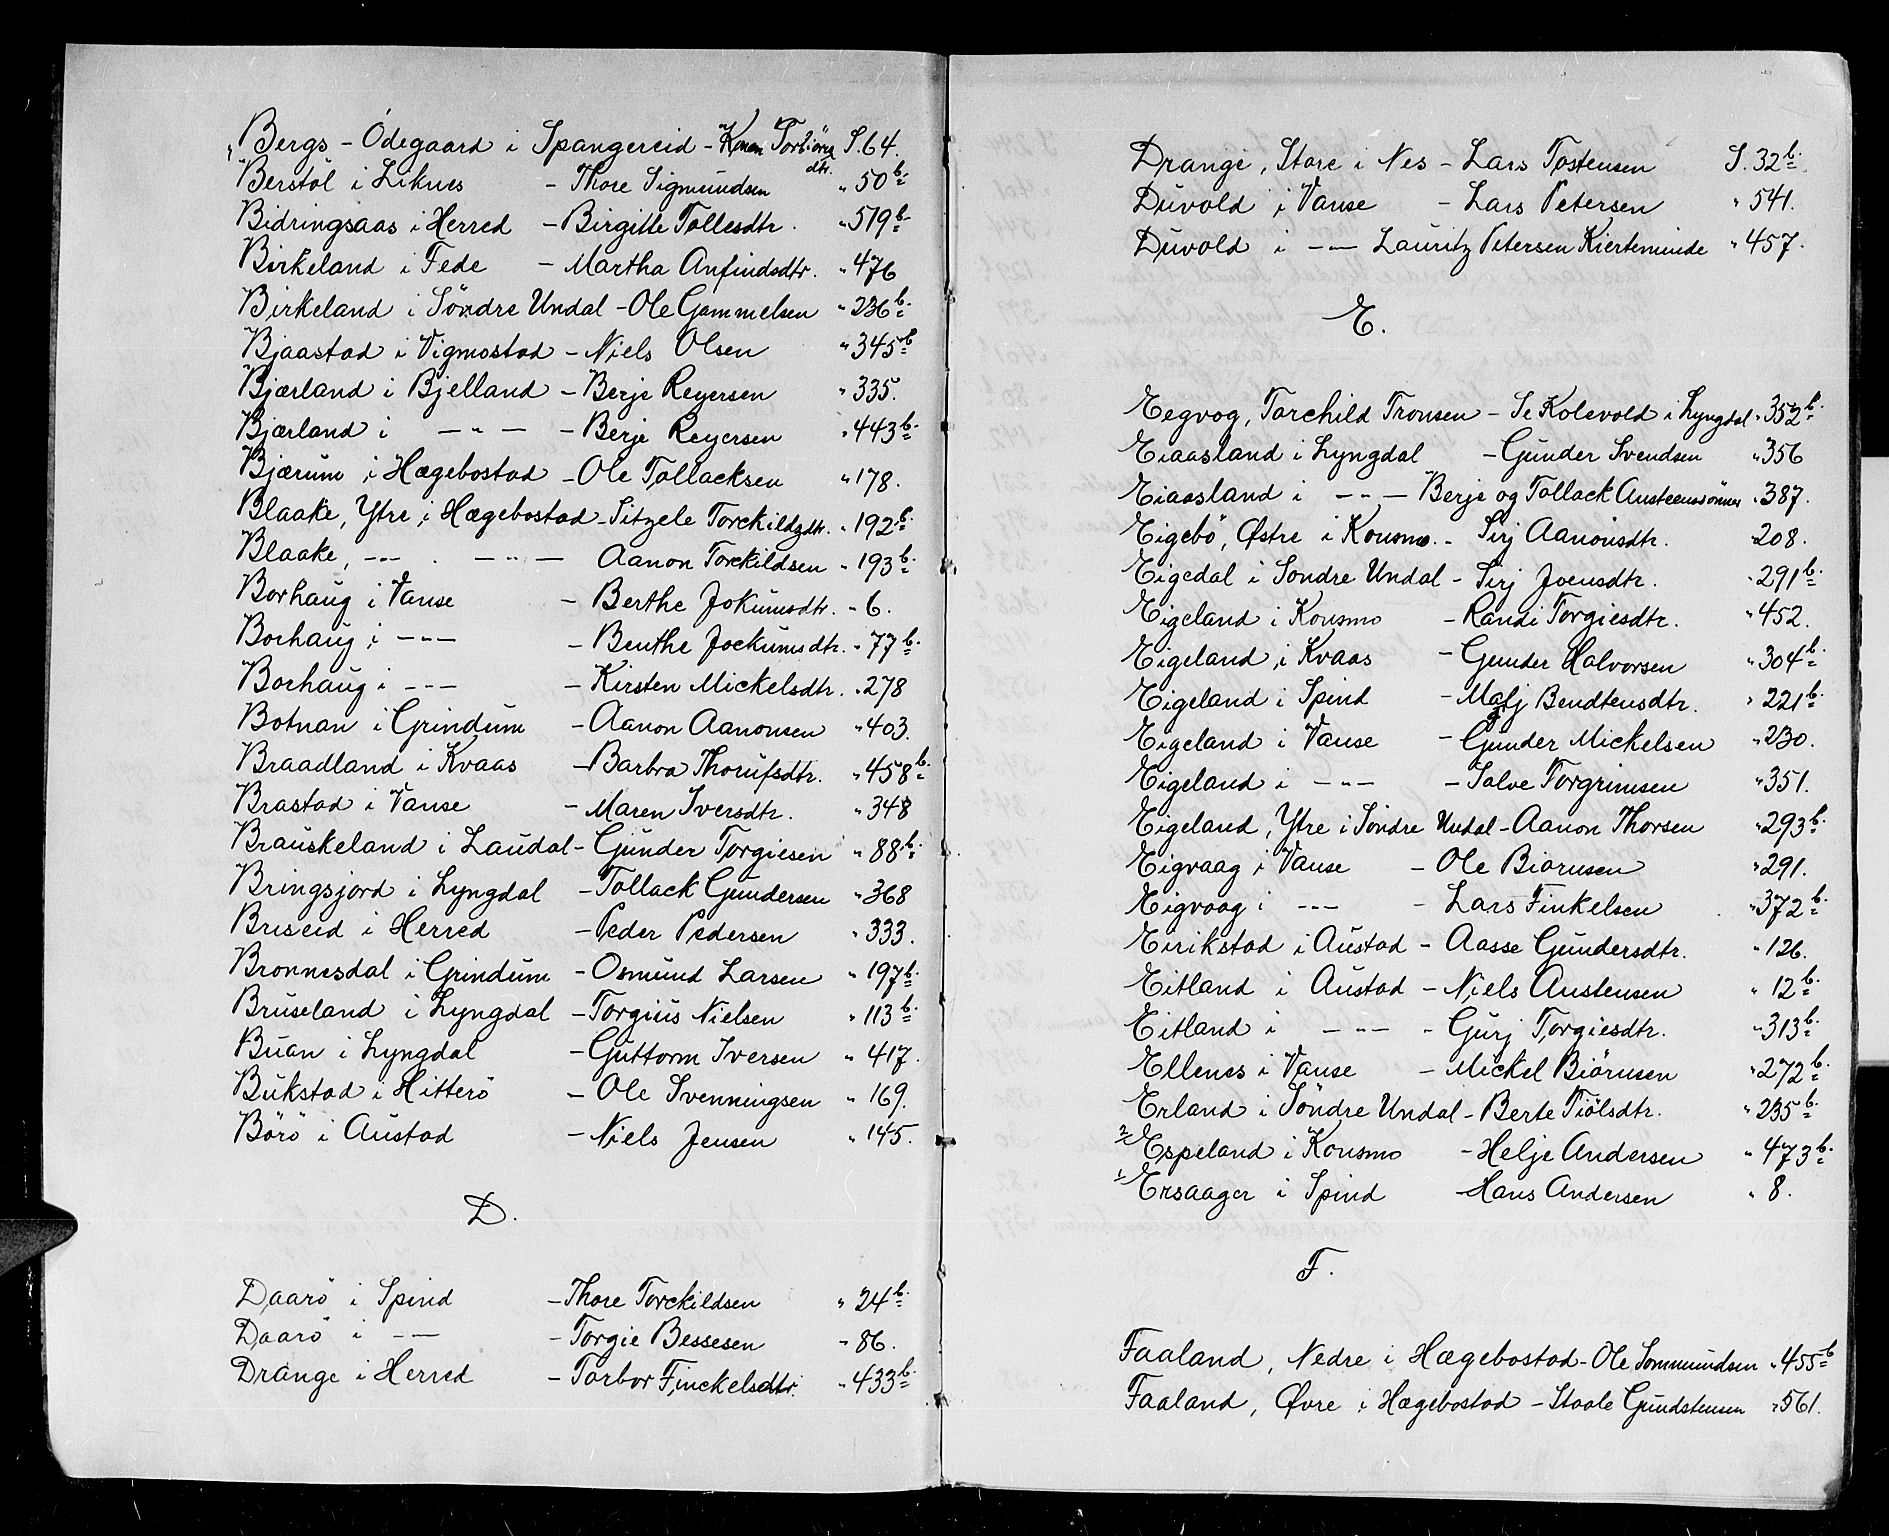 Bergs - Ödegaard i Spangereid - Karen Torbiörns S. 64.
dtr.
Berstöl i Liknes - Thore Sigmundsen " 50 b.
Bidringsaas i Herred - Birgitte Tollesdtr. " 519 b.
Birkeland i Fede - Martha Anfindsdtr. " 476
Birkeland i Söndre Undal - Ole Gammelsen " 236 b.
Bjaastad i Vigmostad - Niels Olsen " 345 b
Bjærland i Bjelland - Berje Reyersen " 335.
Bjærland i - " - - Berje Reyersen " 443 b.
Bjærum i Hægebostad - Ole Tollacksen " 178.
Blaake, Ytre i Hægebostad - Sitzele Torckildsdtr. " 192 b.
Blaake, - " - . - " - Aanon Torckildsen " 193 b.
Borhaug i Vanse - Berthe Jokumsdtr. " 6.
Borhaug i - " - - Benthe Jockumsdtr. " 77 b.
Borhaug i - " - - Kirsten Mickelsdtr. " 278
Botnan i Grindum - Aanon Aanonsen " 403.
Braadland i Kvaas - Barbra Thorufsdtr. " 458 b.
Brastad i Vanse - Maren Iversdtr. " 348
Brauskeland i Laudal - Gunder Torgiesen " 88 b.
Bringsjord i Lyngdal - Tollack Gundersen " 368
Briseid i Herred - Peder Pedersen " 333.
Bronnesdal i Grindum - Osmund Larsen " 197 b.
Bruseland i Lyngdal - Torgius Nielsen " 113 b.
Buan i Lyngdal - Guttorm Iversen " 417.
Bukstad i Hitterö - Ole Svenningsen " 169.
Börö i Austad - Niels Jensen " 145.
D.
Daarö i Spind - Thore Torckildsen " 24 b.
Daarö i - " - - Torgie Bessesen " 86.
Drange i Herred - Torbor Finckelsdtr. " 433 b.
Drange, Store i Nes - Lars Tostensen S. 32 b.
Duvold i Vanse - Lars Petersen " 541.
Duvold i - " - Lauritz Petersen Kierteminde " 457.
E.
Eegvog, Torchild Tronsen - Se Kolevold i Lyngdal " 352 b.
Eiaasland i Lyngdal - Gunder Svendsen " 356
Eiaasland i - " - Berje og Tollack Austeensönner " 387.
Eigebö, Østre i Konsmo. - Sirj Aanonsdtr. 208.
Eigedal i Söndre Undal - Sirj Joensdtr. " 291 b.
Eigeland i Konsmo - Randi Torgiesdtr. " 452.
Eigeland i Kvaas - Gunder Halvorsen " 304 b.
Eigeland i Spind - Bendtensdtr. " 221 b.
Eigeland i Vanse - Gunder Mickelsen " 230.
Eigeland i - " - - Salve Torgrimsen " 351.
Eigeland, Ytre i Söndre Undal - Aanon Thorsen " 293 b.
Eigvaag i Vanse - Ole Biörnsen " 291.
Eigvaag i - " - - Lars Finkelsen " 372 b.
Eirikstad i Austad - Aasse Gundersdtr. " 126.
Eitland i Austad - Niels Austensen " 12 b.
Eitland i - " - - Gurj Torgiesdtr. " 313 b.
Ellenes i Vanse - Mickel Biörnsen " 272 b.
Erland i Söndre Undal - Berte Tiölsdtr. " 235 b.
2 Espeland i Konsmo - Helje Andersen " 473 b.
1 Ersaager i Spind - Hans Andersen " 8.
F.
Faaland, Nedre i Hægebostad - Ole Sommundsen " 455 b
Faaland, Øvre i Hægebostad - Staale Gundstensen " 561.